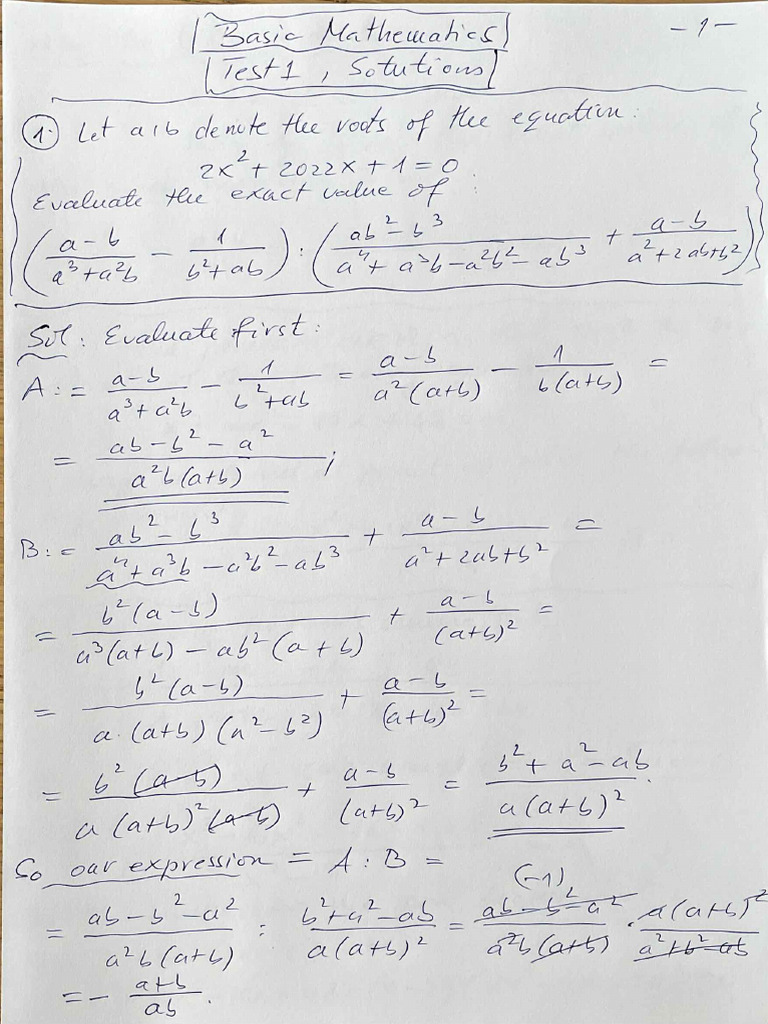 Basic Mathematics
- 1 -
Test 1, Solutions
1. Let a, b denote the roots of the equation:
2x² + 2022x + 1 = 0.
Evaluate the exact value of:
((a-b)/(a³+a²b) - 1/(b²+ab)) : ((ab²-b³)/(a⁴+a³b-a²b²-ab³) + (a-b)/(a²+2ab+b²))
Sol: Evaluate first:
A := (a-b)/(a³+a²b) - 1/(b²+ab) = (a-b)/(a²(a+b)) - 1/(b(a+b)) =
= (ab-b²-a²)/(a²b(a+b));
B := (ab²-b³)/(a⁴+a³b-a²b²-ab³) + (a-b)/(a²+2ab+b²) =
= (b²(a-b))/(a³(a+b)-ab²(a+b)) + (a-b)/(a+b)² =
= (b²(a-b))/(a·(a+b)(a²-b²)) + (a-b)/(a+b)² =
= (b²(a-b))/(a(a+b)²(a-b)) + (a-b)/(a+b)² = (b²+a²-ab)/(a(a+b)²).
So our expression = A : B =
(-1)
= (ab-b²-a²)/(a²b(a+b)) : (b²+a²-ab)/(a(a+b)²) = (ab-b²-a²)/(a²b(a+b)) · (a(a+b)²)/(a²+b²-ab)
= - (a+b)/(ab).